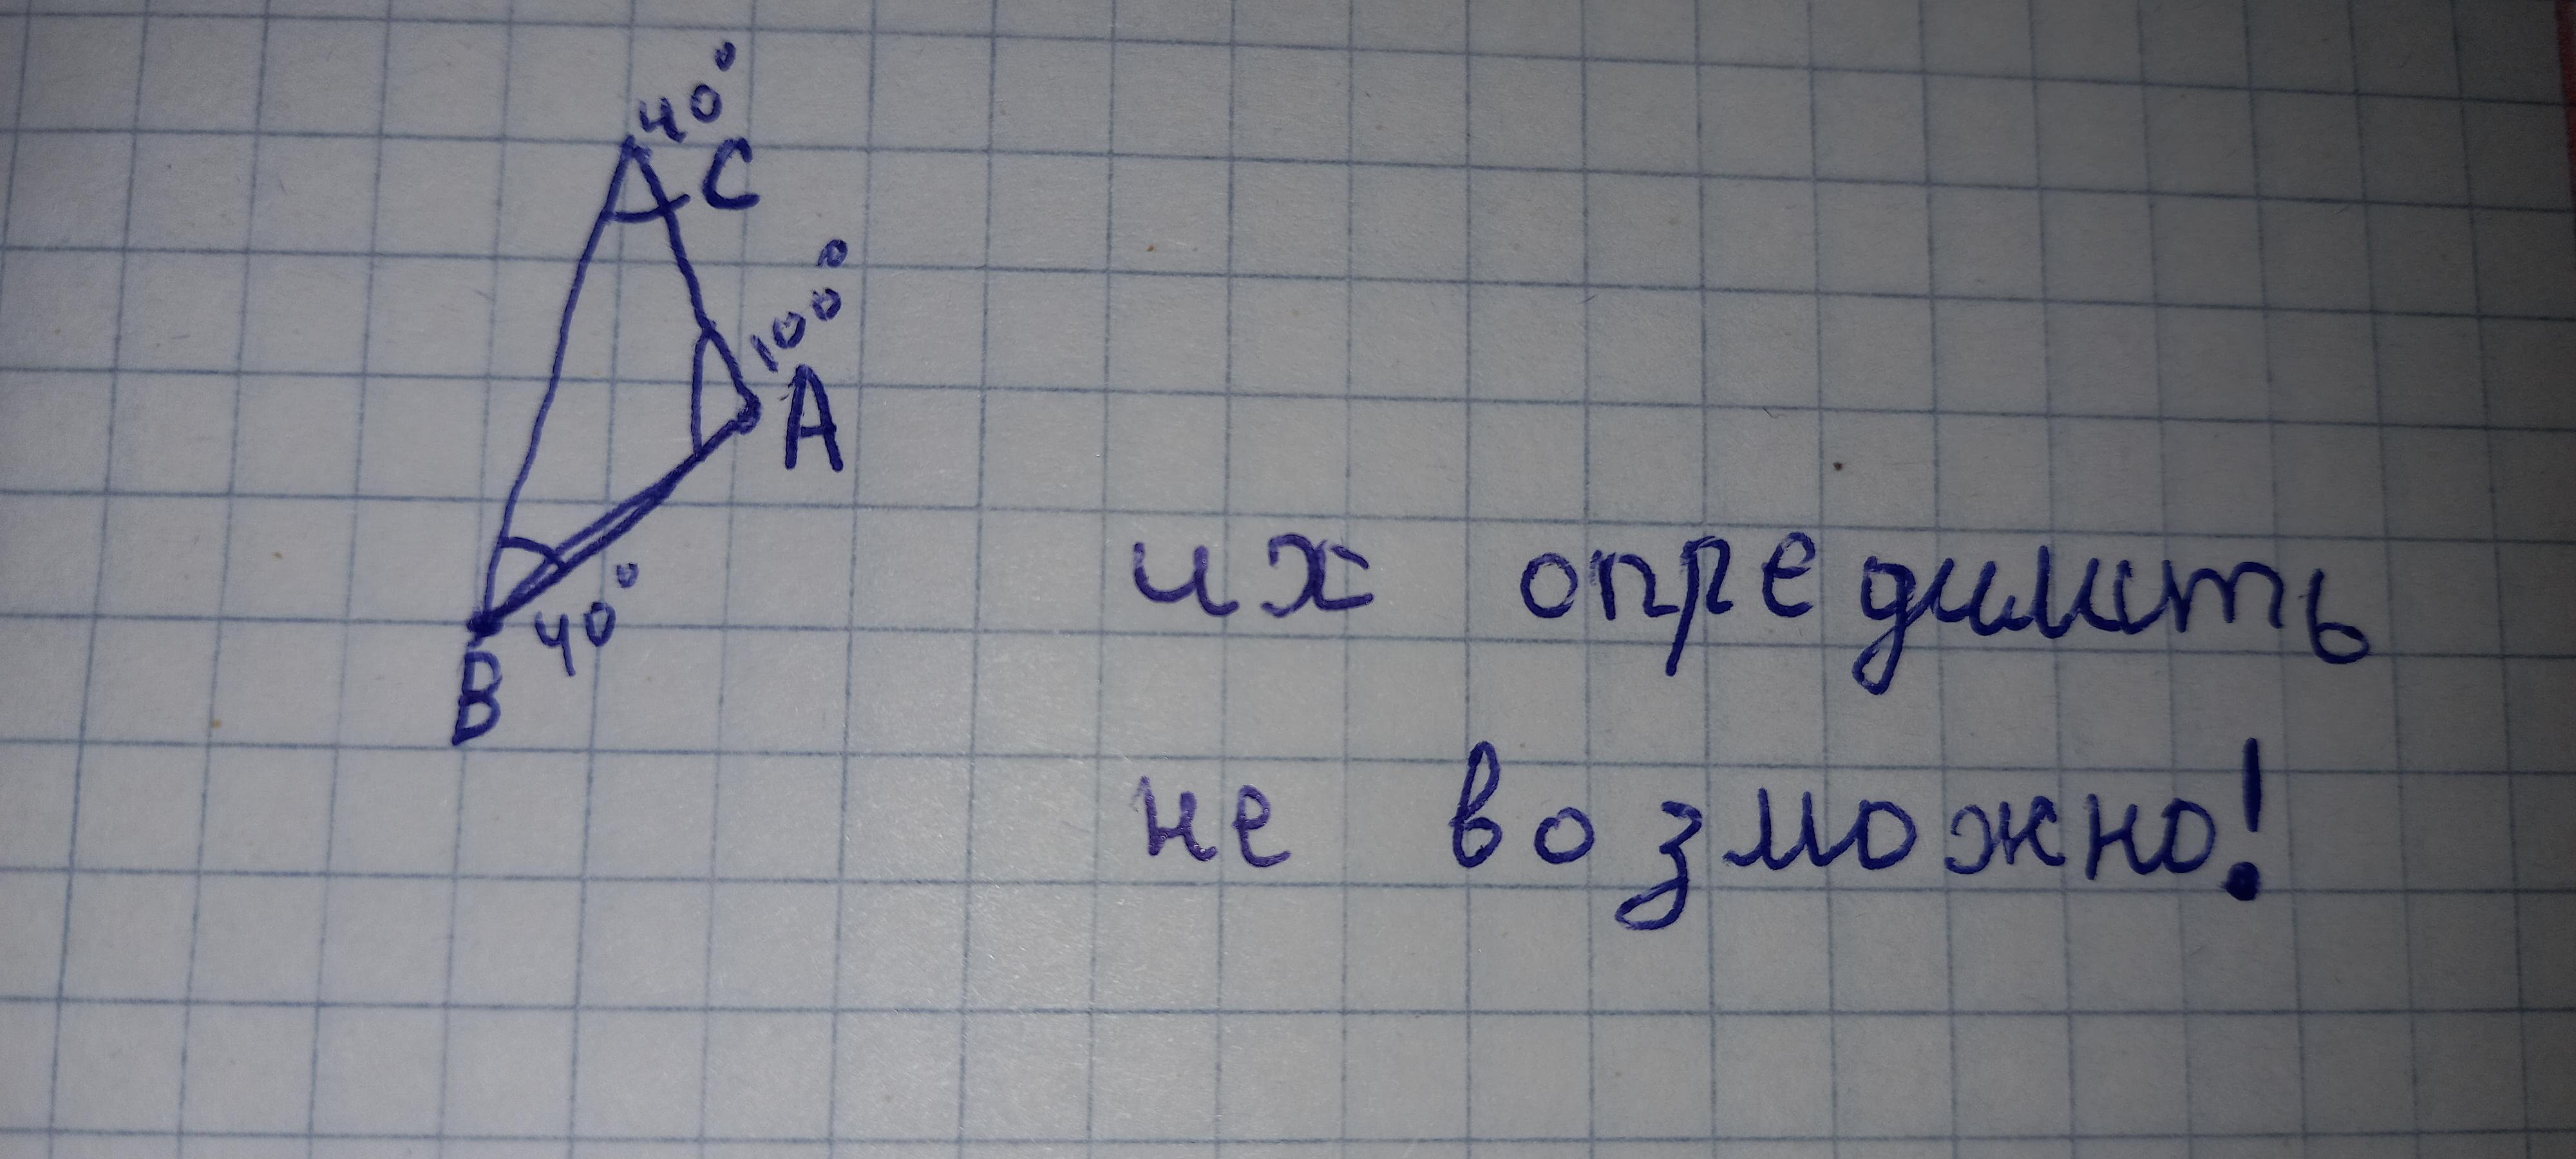 40°
C
100°
A
40°
B
их опредилить
не возможно!